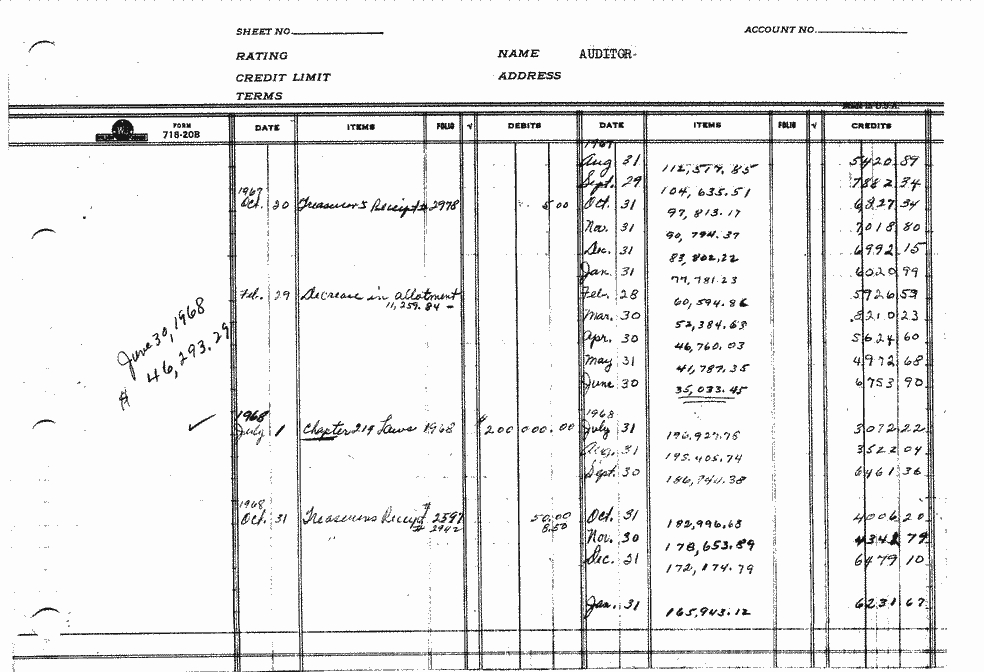 SHEET NO.
ACCOUNT NO.
RATING NAME AUDITOR-
CREDIT LIMIT ADDRESS
TERMS
FORM 718-20B
DATE ITEMS FOLIO √ DEBITS DATE ITEMS FOLIO √ CREDITS
1967
Aug 31 112,517.85 5420 89
Sept. 29 104,635.51 7882 34
1967
Oct. 20 Treasurer's Receipt # 2978 5 00 Oct. 31 97,813.17 6,827 34
Nov. 31 90,794.37 7018 80
Dec. 31 83,802.22 6992 15
Jan. 31 77,781.23 6020 99
Feb. 29 Decrease in allotment Feb. 28 60,594.86 5926 53
11,259.84 -
Mar. 30 52,384.63 8210 23
Apr. 30 46,760.03 5624 60
May 31 41,787.35 4972 68
June 30 35,033.45 6753 90
June 30, 1968
$ 46,293.29
1968 1968
July 1 Chapter 219 Laws 1968 $ 200 000.00 July 31 196,927.78 3072 22
Aug. 31 193,405.74 3522 04
Sept. 30 186,944.38 6461 36
1968
Oct. 31 Treasurers Receipt # 2597 50.00 Oct. 31 182,996.68 4006 20
# 2942 8.50
Nov. 30 178,653.89 4342 79
Dec. 31 172,174.79 6479 10
Jan. 31 165,943.12 6231 67